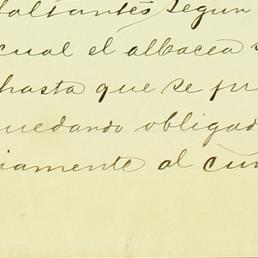 faltantes segun
cual el albacea
hasta que se pr
quedando obligad
riamente al cum